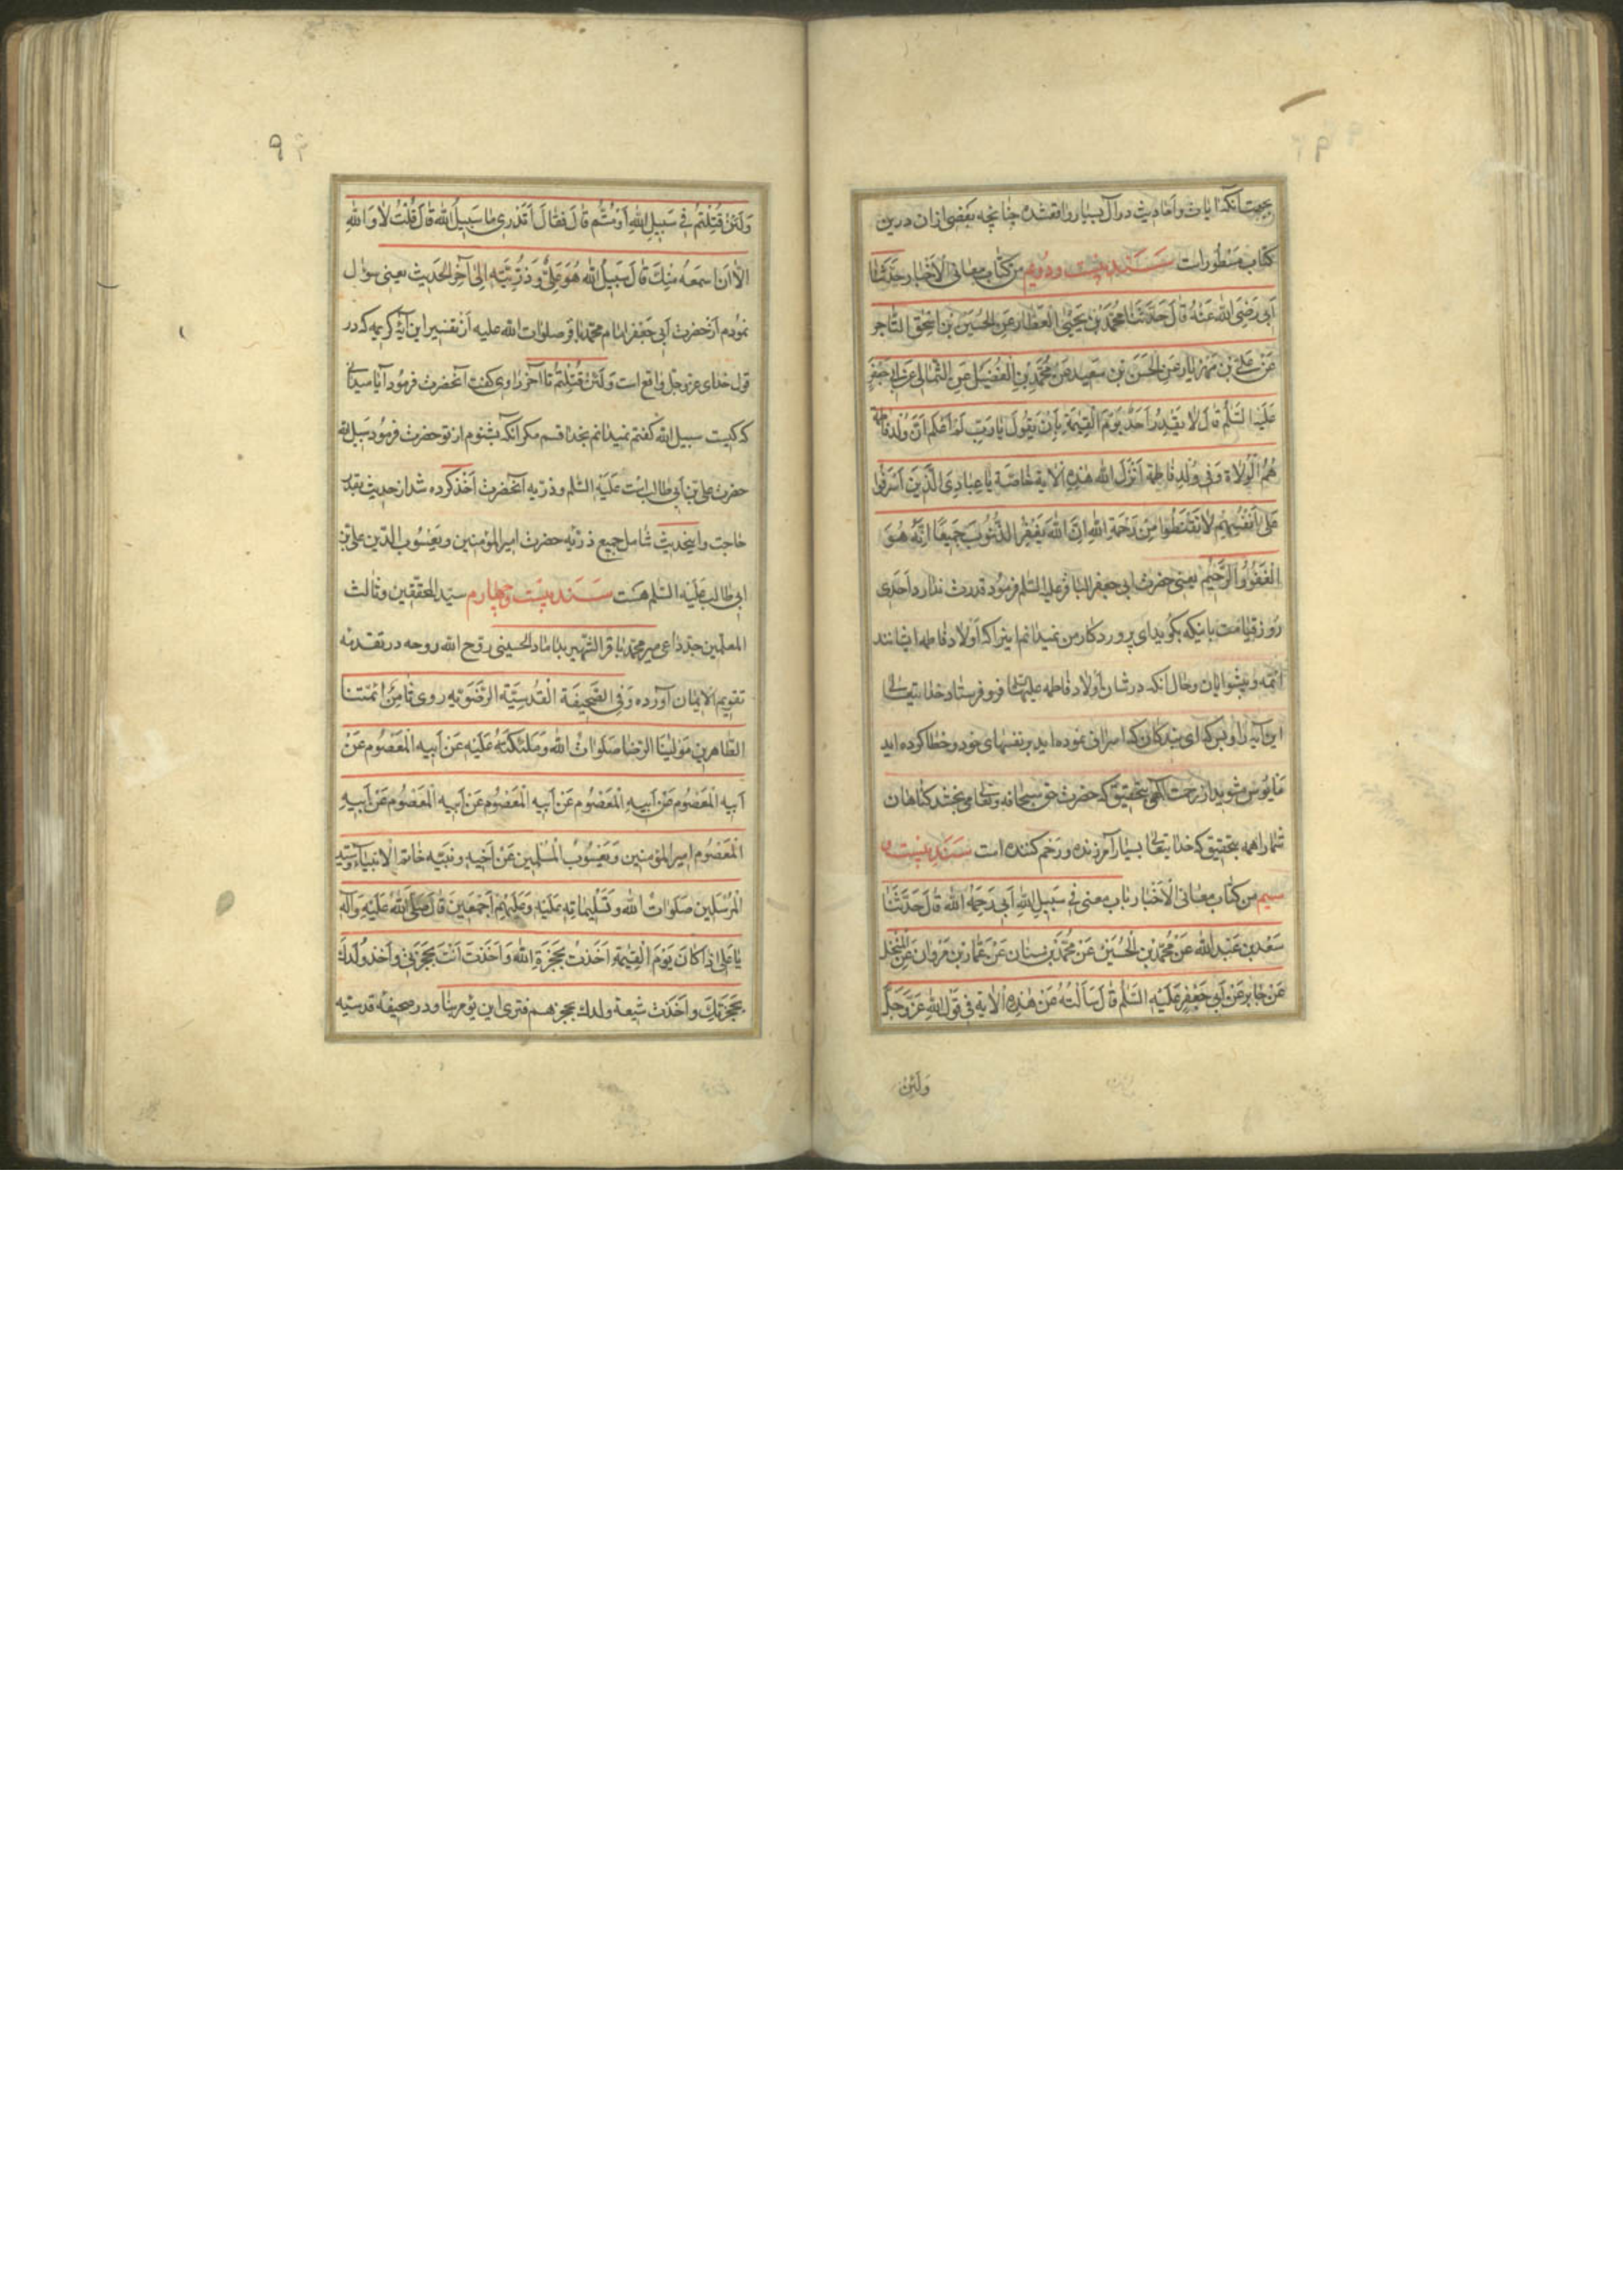 بجهت آنکه ایات و احادیث در آل بسیار واقعشده چنانچه بعضی ازان درین
کتاب مسطورات سند بیست و دویم من کتاب معانی الاخبار حدثنا
ابی رضی الله عنه قال حدثنا محمد بن یحیی العطار عن الحسین بن اسحق التاجر
عن علی بن مهزیار عن الحسن بن سعید عن محمد بن الفضیل عن الثمالی عن ابی جعفر
علیه السلم قال لا یقدر احد یوم القیمة بان یقول یا رب لم اعلم ان ولد فاطمة
هم الولاة و فی ولد فاطمة انزل الله هذه الایة خاصة یا عبادی الذین اسرفوا
علی انفسهم لا تقنطوا من رحمة الله ان الله یغفر الذنوب جمیعا انه هو
الغفور الرحیم یعنی حضرت ابی جعفر الباقر علیه السلم فرمود قدرت ندارد احدی
روز قیامت باینکه بگوید ای پروردکار من نمیدانم اینرا که اولاد فاطمه ایشانند
ائمه و پیشوایان و حال آنکه در شان اولاد فاطمه علیها فرو فرستاد خدا یتعالی
این آیه را و بس که ای بندکان که اسراف نموده اید بر نفسهای خود و خطا کرده اید
مایوس مشوید از رحمت الهی بتحقیق که حضرت حق سبحانه و تعالی می بخشد کناهان
شما را همه بتحقیق که خدا یتعالی بسیار آمرزنده و رحم کننده است سند بیست و
سیم من کتاب معانی الاخبار باب معنی فی سبیل الله ابی رحمه الله قال حدثنا
سعد بن عبد الله عن محمد بن الحسین عن محمد بن سنان عن عمار بن مروان عن المنخل
عن جابر عن ابی جعفر علیه السلم قال سالته عن هذه الایة فی قول الله عز و جل
ولئن
۹
ولئن قتلتم فی سبیل الله او متم قال فقال اتدری ما سبیل الله قال قلت لا و الله
الا ان اسمعه منک قال سبیل الله هو علی و ذریته الی آخر الحدیث یعنی سؤال
نمودم از حضرت ابی جعفر امام محمد باقر صلوات الله علیه از تفسیر این آیه کریمه که در
قول خدای عز و جل واقع است ولئن قتلتم تا آخر راوی کفت آنحضرت فرمود آیا میدانی
که کیست سبیل الله کفتم نمیدانم بخدا قسم مکر آنکه بشنوم از تو حضرت فرمود سبیل الله
حضرت علی بن ابی طالب است علیه السلم و ذریه آنحضرت اخذ کرده شد از حدیث بقدر
حاجت و اینحدیث شامل جمیع ذریه حضرت امیر المؤمنین و یعسوب الدین علی بن
ابی طالب علیه السلم هست سند بیست و چهارم سید المحققین و ثالث
المعلمین جد داعی میر محمد باقر الشهیر بداماد الحسینی روح الله روحه در تقدمه
تقویم الایمان آورده و فی الصحیفة القدسیة الرضویه روی ثامن ائمتنا
الطاهرین مولینا الرضا صلوات الله و ملئکته علیه عن ابیه المعصوم عن
ابیه المعصوم عن ابیه المعصوم عن ابیه المعصوم عن ابیه المعصوم عن ابیه
المعصوم امیر المؤمنین و یعسوب المسلمین عن اخیه و نبیه خاتم الانبیاء و سید
المرسلین صلوات الله و تسلیماته علیه و علیهم اجمعین قال صلی الله علیه و آله
یا علی اذا کان یوم القیمة اخذت بحجزة الله و اخذت انت بحجزتی و اخذ ولدک
بحجزتک و اخذت شیعة ولدک بحجزهم فتری این یؤمر بنا و در صحیفه قدسیه